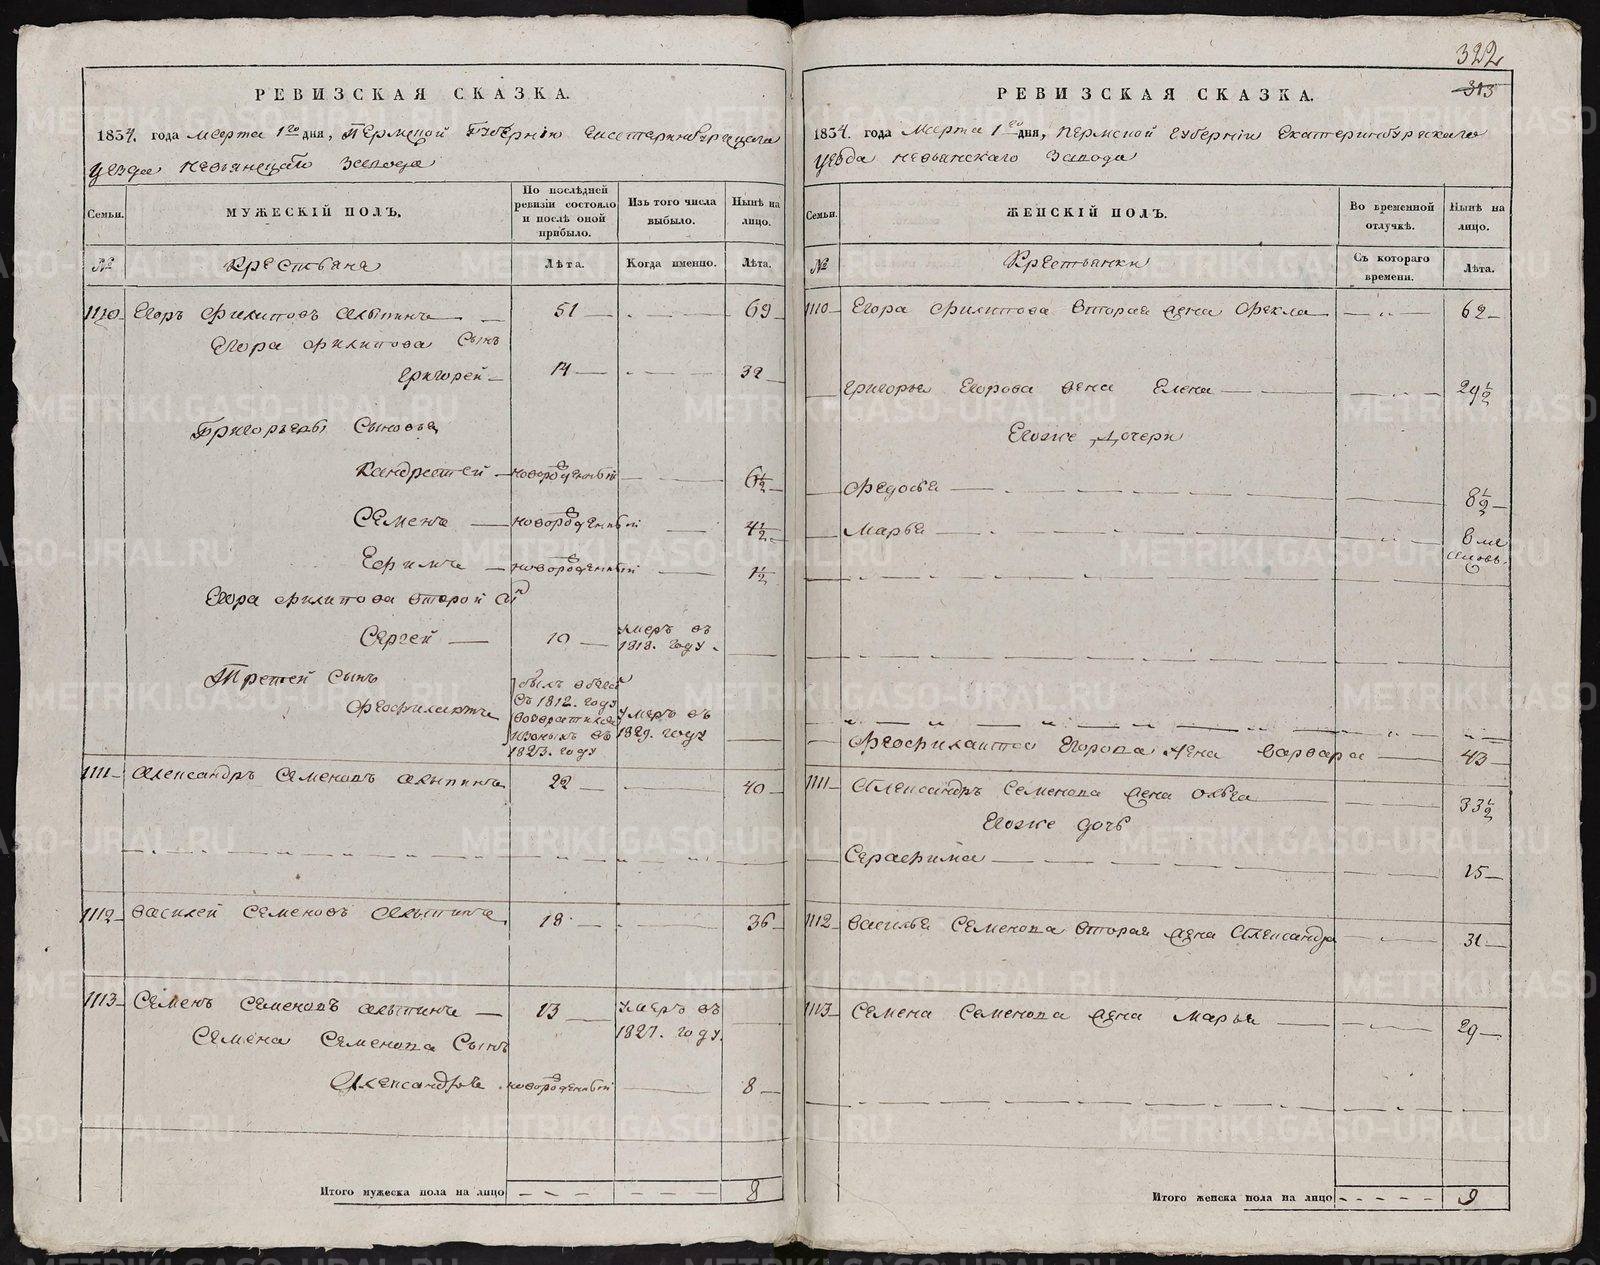 322
313
РЕВИЗСКАЯ СКАЗКА.
1834. года Марта 1го дня, Пермской Губернiи Екатеринбургскаго
уезда Невьянскаго Завода
Семьи.
МУЖЕСКIЙ ПОЛЪ.
По послѣдней ревизiи состояло и послѣ оной прибыло.
Изъ того числа выбыло.
Нынѣ на лицо.
№
Крестьяне
Лѣта.
Когда именно.
Лѣта.
1110 Егоръ Филиповъ 51 69
Егора Филипова Сынъ
Григорей 14 32
Григорьевы Сыновья
Кандратей новорожденный 6½
Семенъ новорожденный 4½
Ефимъ новорожденный 1½
Егора Филипова второй
Сергей 10 умеръ въ 1818. году
Третей Сынъ
Феофилактъ былъ въ 1812. году въ 1823. году умеръ въ 1829. году
1111 Александръ Семеновъ 22 40
1112 Василей Семеновъ 18 36
1113 Семенъ Семеновъ 13 умеръ въ 1827. году
Семена Семенова Сынъ
Александръ новорожденный 8
Итого мужеска пола на лицо 8
РЕВИЗСКАЯ СКАЗКА.
1834. года Марта 1го дня, Пермской Губернiи Екатеринбургскаго
уезда Невьянскаго Завода
Семьи.
ЖЕНСКIЙ ПОЛЪ.
Во временной отлучкѣ.
Нынѣ на лицо.
№
Крестьянки
Съ котораго времени.
Лѣта.
1110 Егора Филипова вторая жена Фекла 62
Григорья Егорова жена Елена 29½
Егоже дочери
Федосья 8½
Марья
Феофилакта Егорова жена Варвара 43
1111 Александръ Семенова жена Ольга 33½
Егоже дочь
Серафима 15
1112 Василья Семенова вторая жена Александра 31
1113 Семена Семенова жена Марья 29
Итого женска пола на лицо 9
METRIKI.GASO-URAL.RU